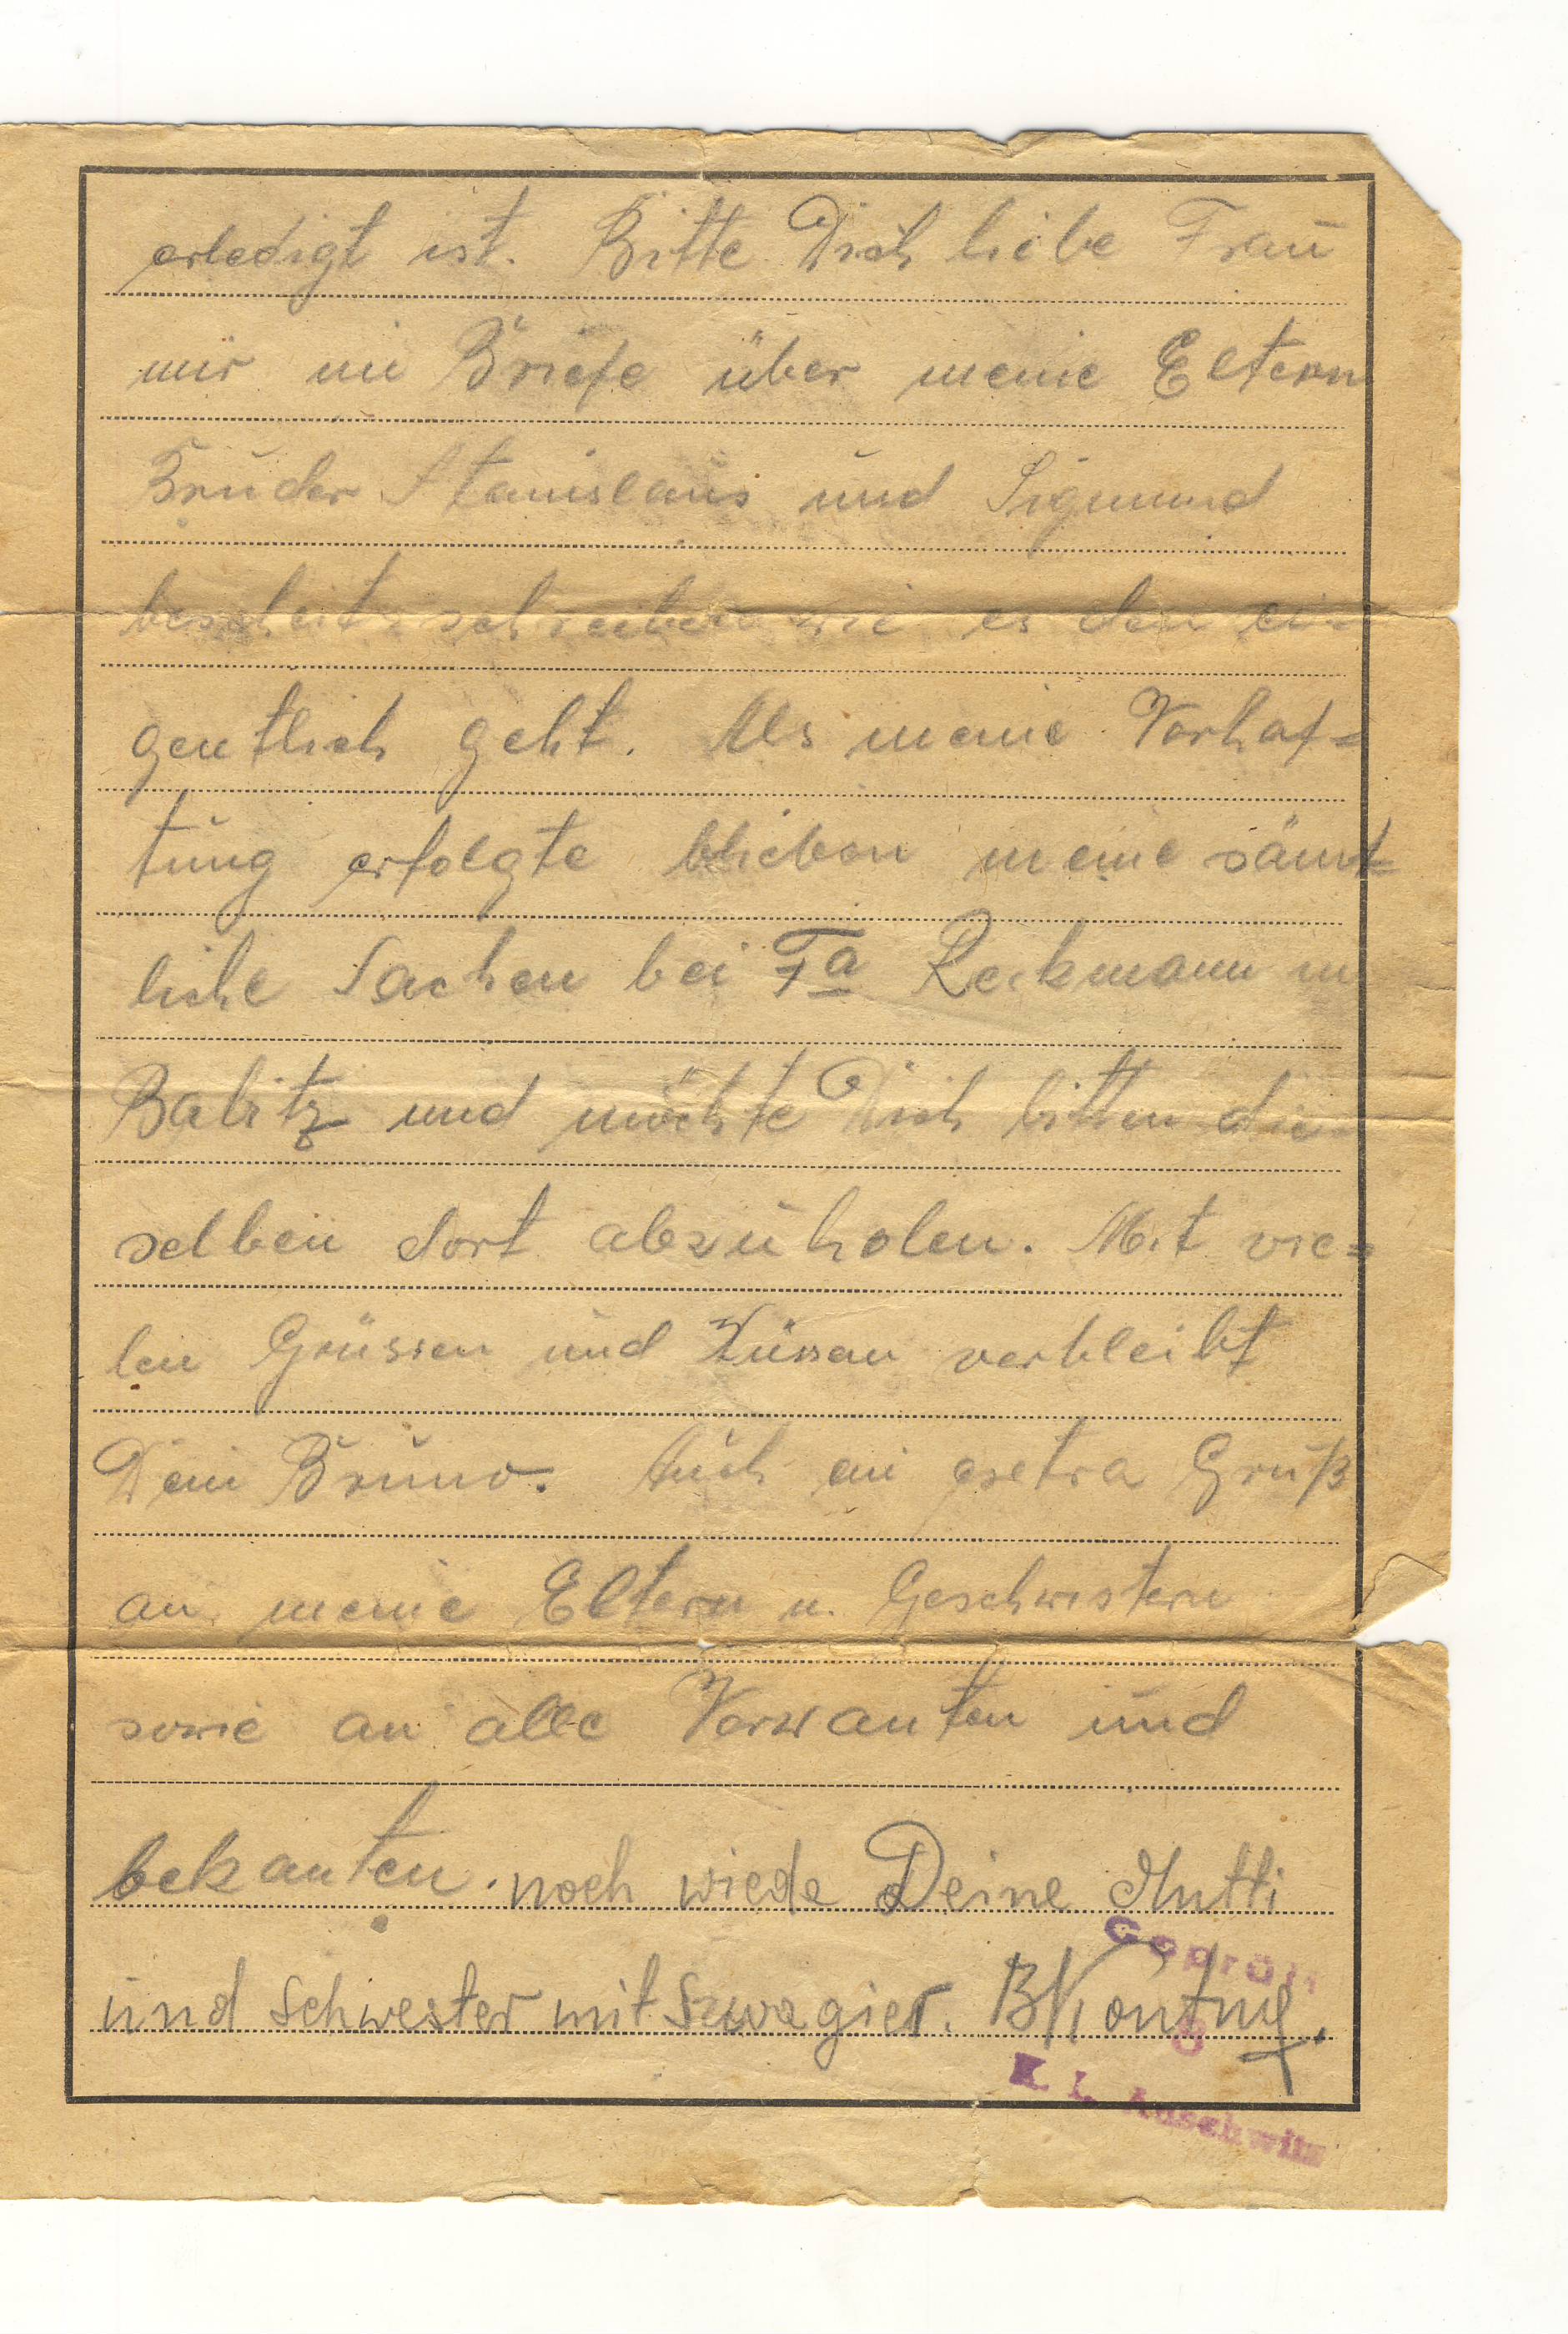 erledigt ist. Bitte Dich liebe Frau
mir im Briefe über meine Eltern
Brüder Stanislaus und Sigmund
bescheit schreiben wie es den ei=
gentlich geht. Als meine Verhaf=
tung erfolgte blieben meine sämt=
liche Sachen bei Fa Reckmann in
Balitz und möchte Dich bitten die=
selben dort abzuholen. Mit vie=
len Grüssen und Küssen verbleibt
Dein Bruno. Auch ein exetra Gruß
an meine Eltern u. Geschwistern
sowie an alle Verwanten und
bekanten. noch wiede Deine Mutti
und Schwester mit Suvagier. B Kontny.
Geprüft
8
K. L. Auschwitz